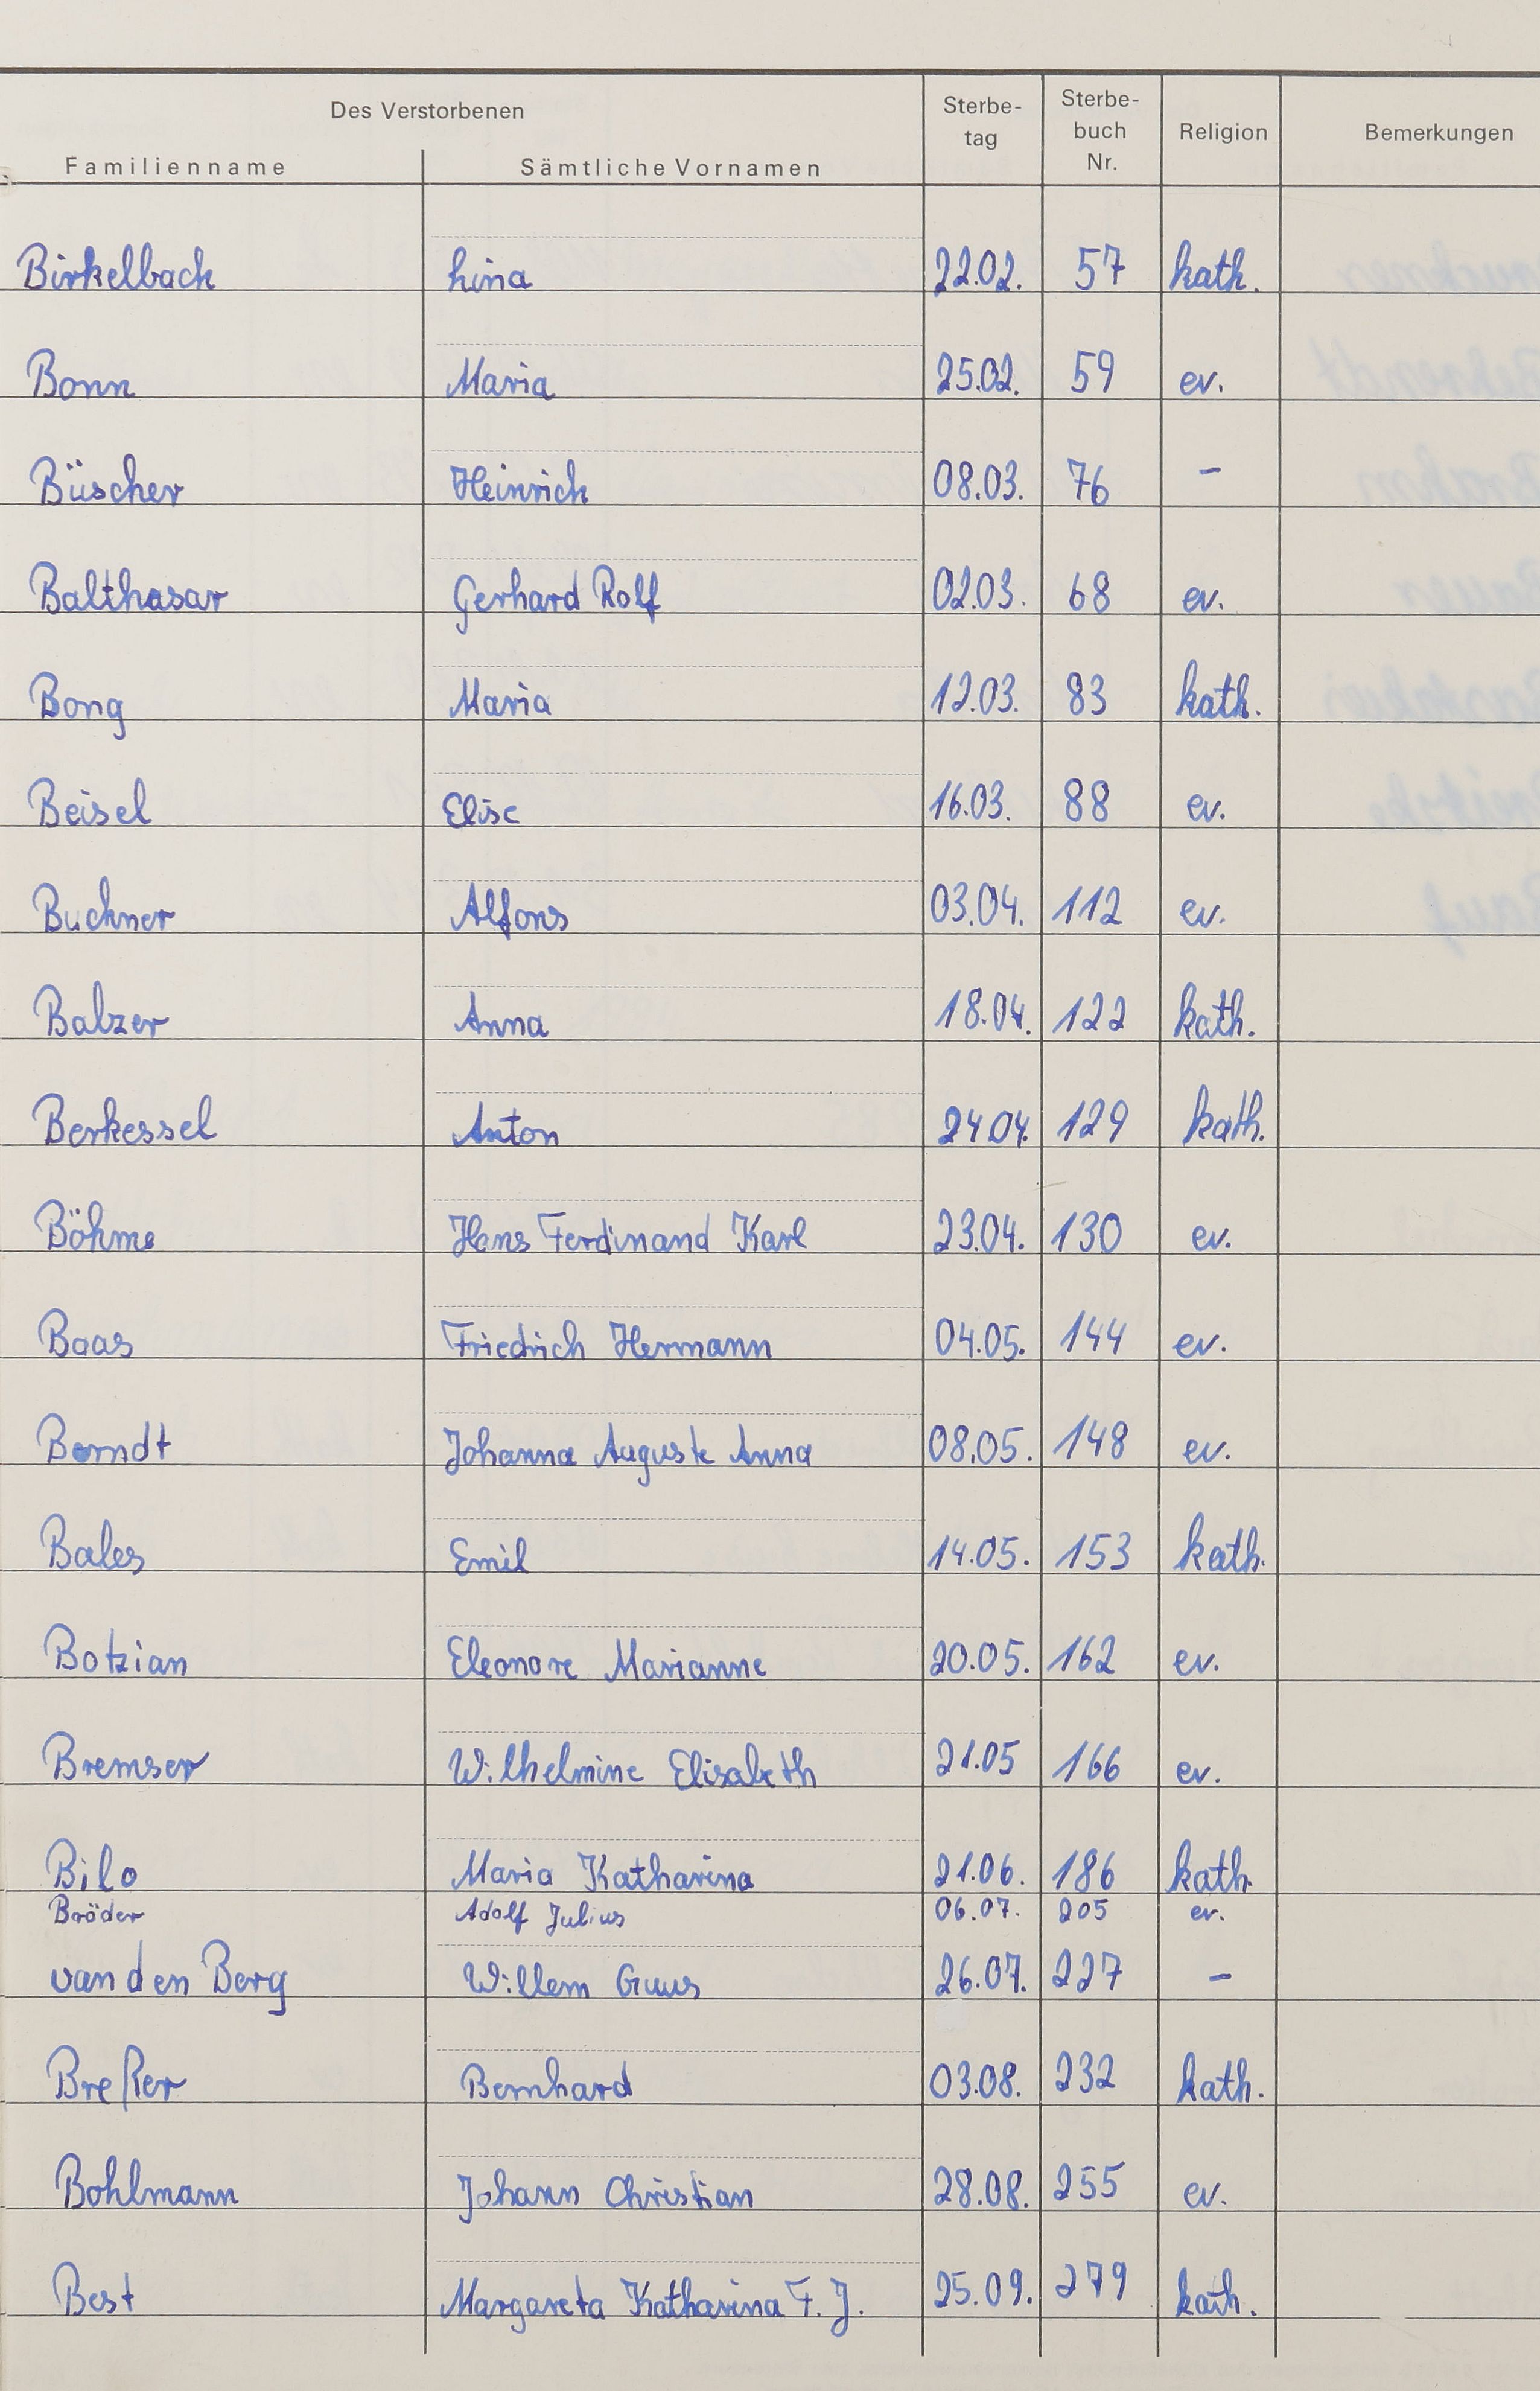 Des Verstorbenen
Familienname Sämtliche Vornamen Sterbe-tag Sterbe-buch Nr. Religion Bemerkungen
Birkelbach Lina 22.02. 57 kath.
Bonn Maria 25.02. 59 ev.
Büscher Heinrich 08.03. 76 -
Balthasar Gerhard Rolf 02.03. 68 ev.
Bong Maria 12.03. 83 kath.
Beisel Elise 16.03. 88 ev.
Buchner Alfons 03.04. 112 ev.
Balzer Anna 18.04. 122 kath.
Berkessel Anton 24.04. 129 kath.
Böhme Hans Ferdinand Karl 23.04. 130 ev.
Baas Friedrich Hermann 04.05. 144 ev.
Berndt Johanna Auguste Anna 08.05. 148 ev.
Bales Emil 14.05. 153 kath.
Botzian Eleonore Marianne 20.05. 162 ev.
Bremser Wilhelmine Elisabeth 21.05 166 ev.
Bilo Maria Katharina 21.06. 186 kath.
Bröder Adolf Julius 06.07. 205 ev.
van den Berg Willem Guus 26.07. 227 -
Breßer Bernhard 03.08. 232 kath.
Bohlmann Johann Christian 28.08. 255 ev.
Best Margareta Katharina F. J. 25.09. 279 kath.